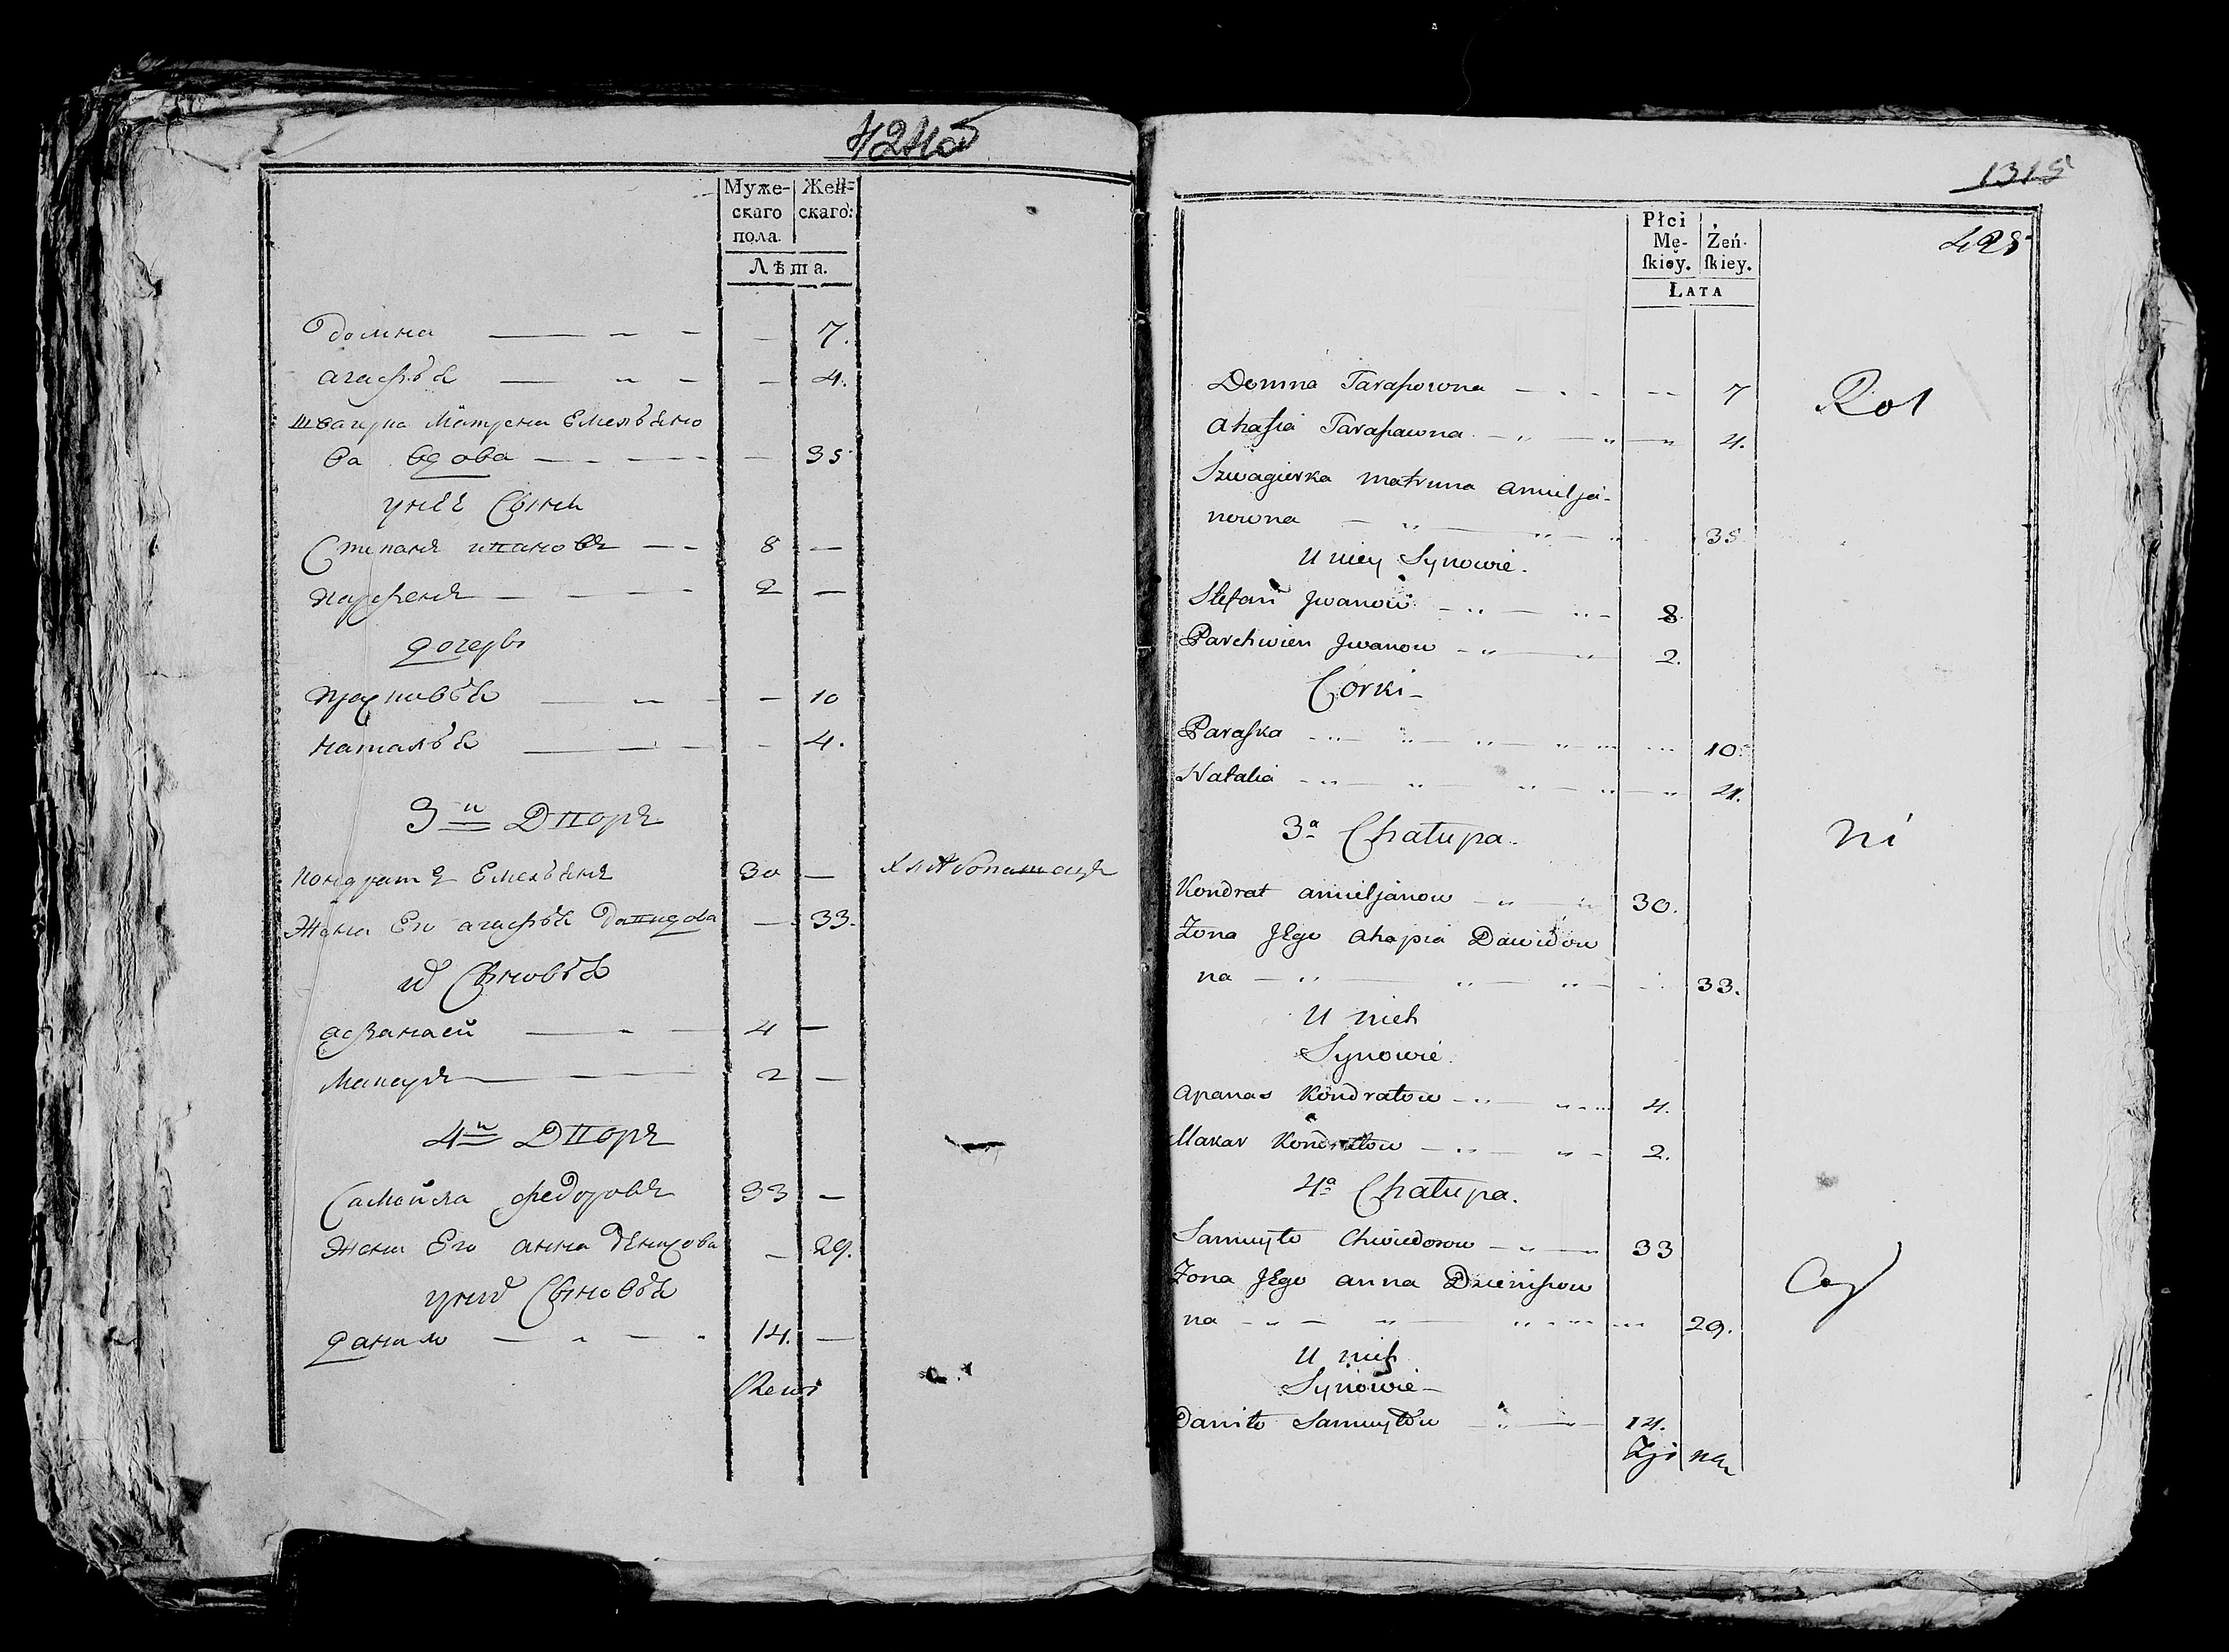 424об
Муже-
скаго
пола.
Жен-
скаго:
Лѣта.
Домна — „ - — 7.
агафья — „ - — 4.
швагрка Матрена Емельяно
ва вдова — - — 35
унеё Сыны
Степанъ ивановъ — - 8 —
парфенъ — - - - 2 —
дочеры
прасковья — „ - — 10
наталья — - - 4.
3й Дворъ
кондратъ Емельянъ 30 — хлѣбопашецъ
Жена Его агафья давыдова — 33.
их Сыновья
афанасей — - - 4 —
Макаръ — - — 2 —
4й Дворъ
Самойла федоровъ 33 —
Жена Его анна денисова — 29.
уних Сыновья
данило — „ — „ 14. —
Rewi
1315
425
Płci
Mę-
ſkiey.
Żeń-
ſkiey.
LATA
Domna Tarasowna — 7
Rol
Ahafia Tarasowna — „ — 4.
Szwagierka matruna amielja-
nowna — „ — „ — 35
U niey Synowie.
Stefan Jwanow — „ — 8.
Parchwien Jwanow — „ — 2.
Córki —
Paraſka — „ — „ — 10.
Natalia — „ — „ — 4.
3a Chałupa.
ni
Kondrat amieljanow — „ — 30.
Żona JEgo ahapia Dawidow
na — „ — „ — 33.
U nich
Synowie.
Apanas Kondratow — „ — 4.
Makar Kondratow — „ — 2.
4a Chałupa.
Samuyło Chwiedorow — „ — 33
Żona JEgo anna Dzienisow
na — „ — „ — 29.
U nich
Synowie —
Daniło Samuyłow — „ — 14.